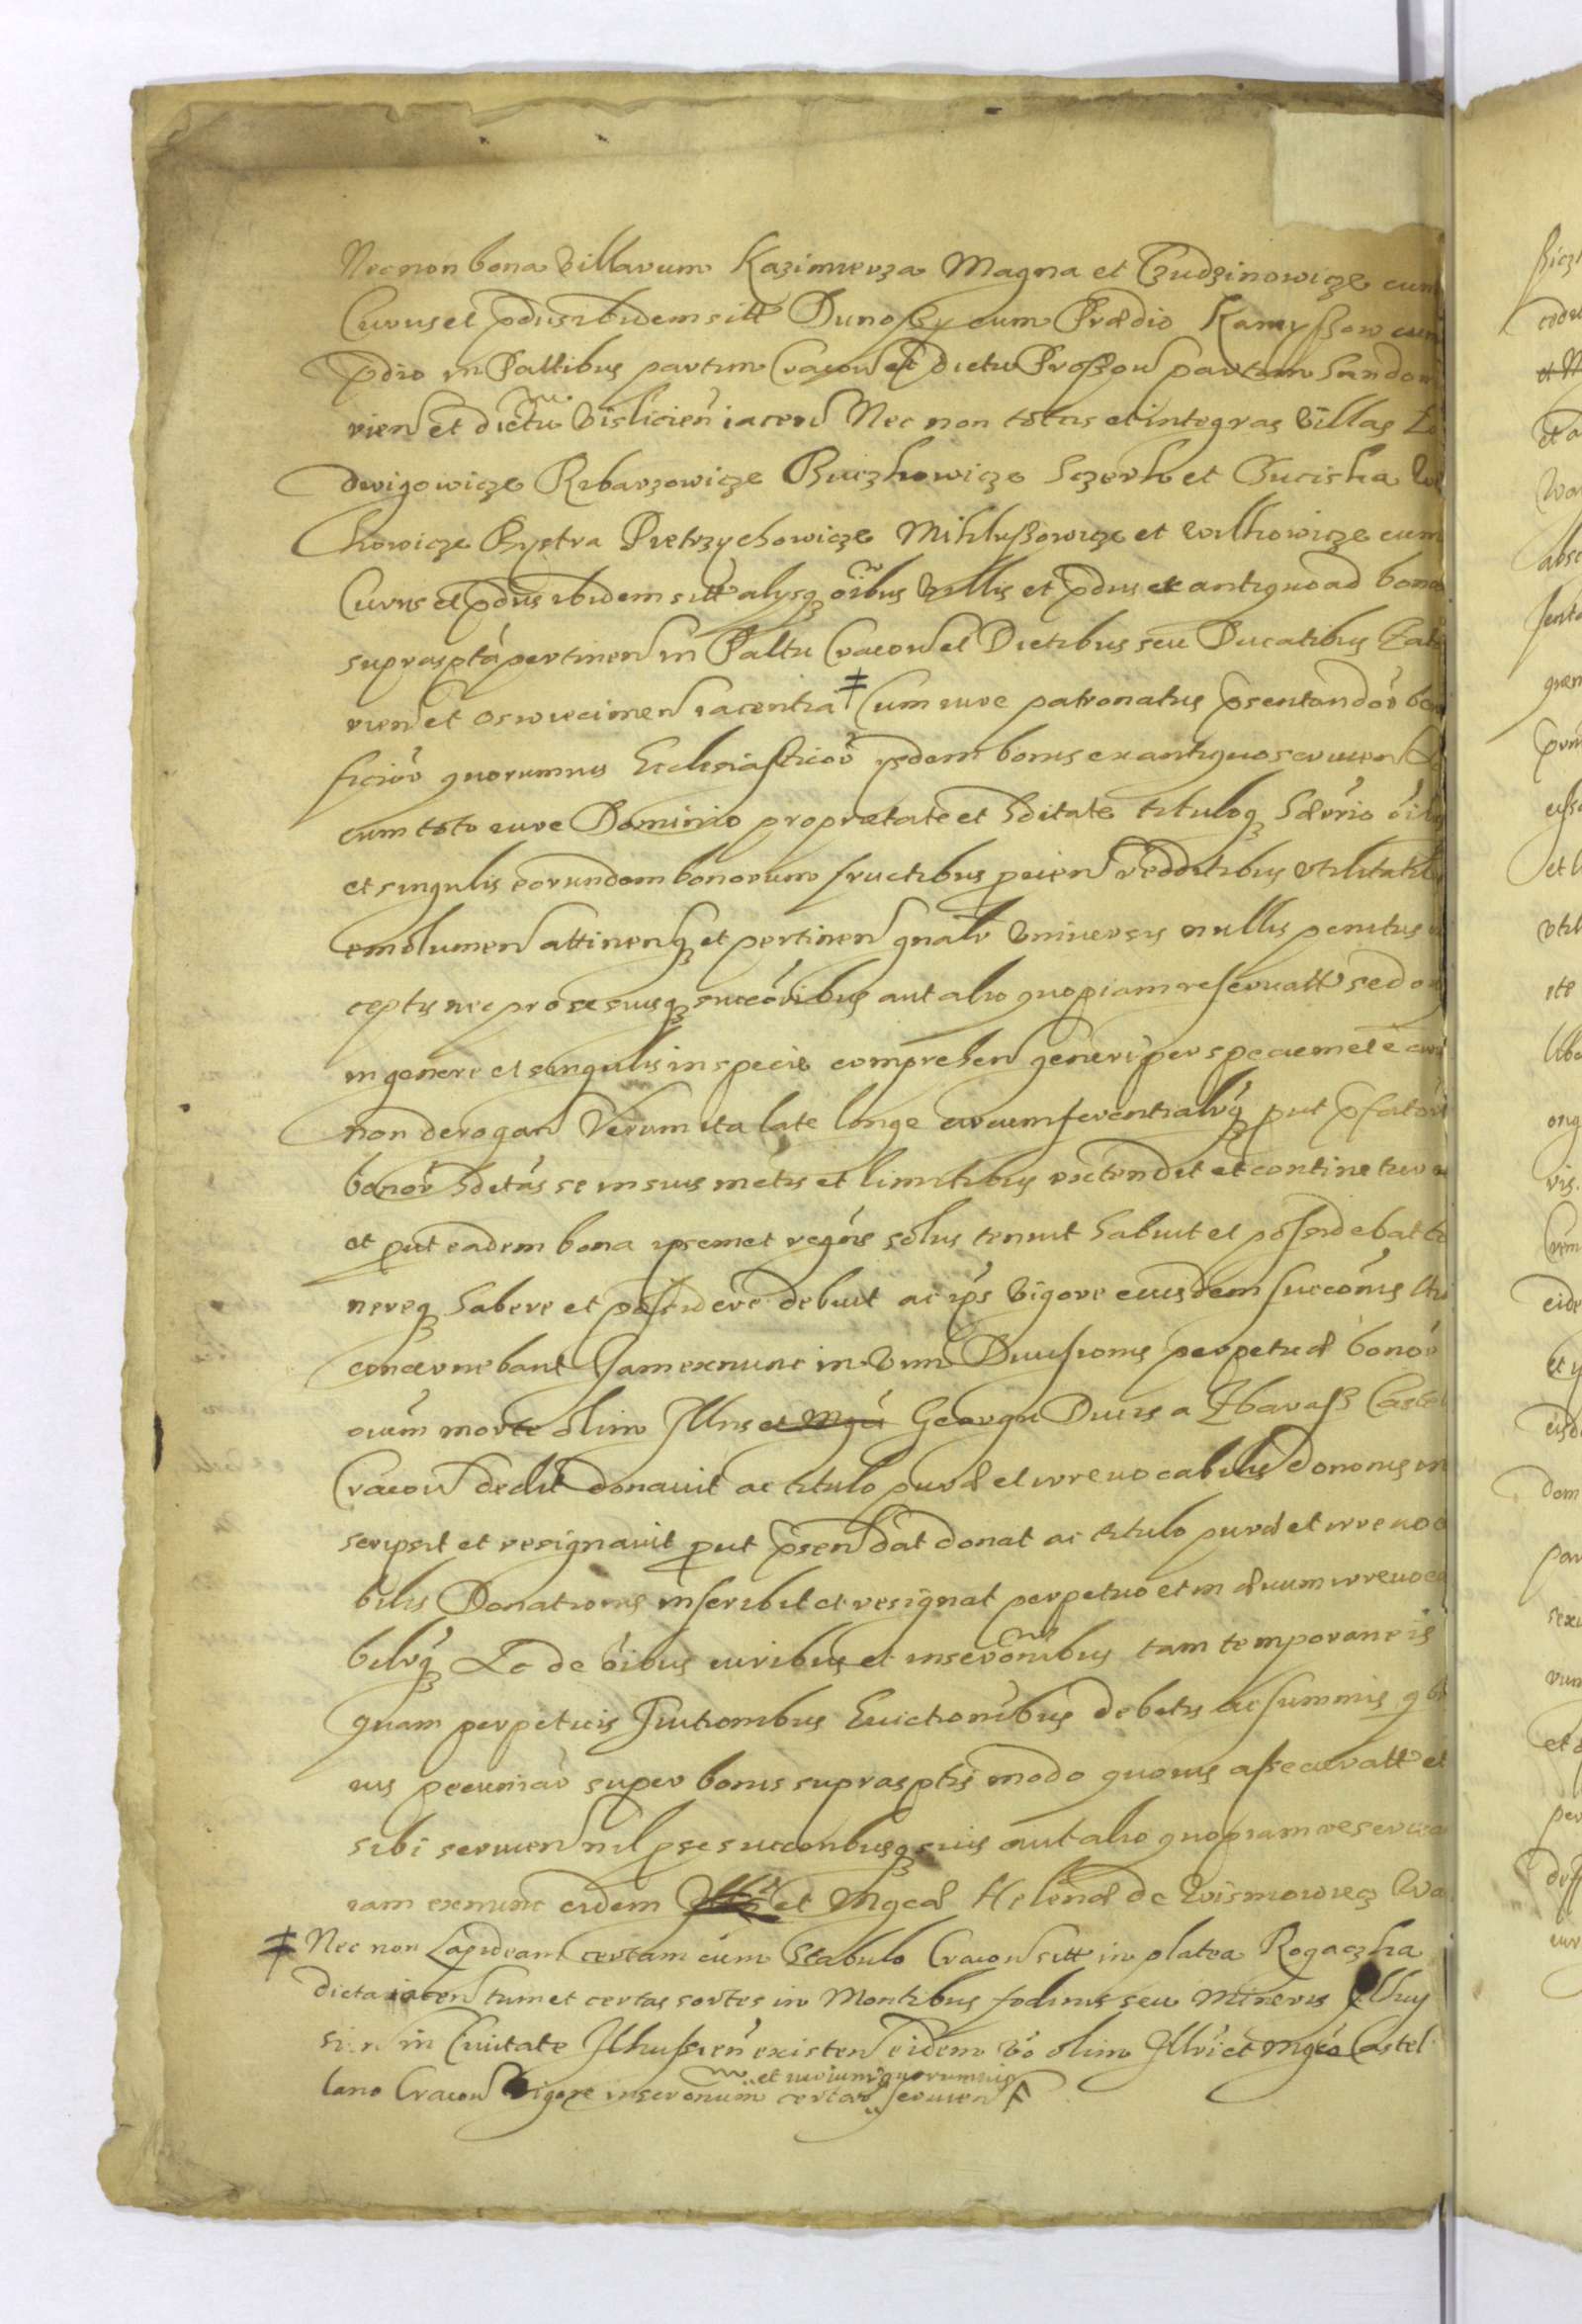 Necnon bona villarum Kazimierza Magna et Czudzinowicze cum
Curus et pdus ibidem sitt Dunoszy cum Prædio Kamyszow cum
pdio in Paltibus partim Cracou et dictu Proszou partim Sando
rien et dictu Vislicien iacen Nec non totas et integras Villas
dwigowicze Rzbarzowicze Buczkowicze Sczerk et Bucziska
kowicze Bystra Pietrzychowicze Mikluszowicze et Wilkowicze cum
Curus et pdus ibidem sitt alysq oibus villis et pdus ex antiquo ad bona
suprasptá pertinen in Paltu Cracou et Dictibus seu Ducatibus Zato
rien et Oswiecimen iacentia ‡ Cum iure patronatus psentandor be
ficior quorumuis Ecclesiasticor ysdem bonis ex antiquo seruien
cum toto iure Dominio proprietate et hditate tituloq hærio oibus
et singulis eorundem bonorum fructibus prouen redditibus vtilitatib
emolumen attinenq et pertinen gnalr vniuersis nullis penitus
ceptis nec pro se suisq succoribus aut alio quopiam reseruatt sed o
in genere et singulis in specie comprehen generi per speciem et e con
non derogan Verum ita late longe circumferentialrq put pfator
bonor hditas se in suis metis et limitibus extendit et continetur
et put eadem bona ipsemet regns solus tenuit habuit et possidebat te
nereq habere et possidere debuit ac ips vigore eiusdem succonis
concernebant Iam exnunc in vim Diuisionis perpetuæ bonor
oium morte olim Illris et Mgci Georgii Ducis a Zbarasz Castel
Cracou dedit donauit ac titulo puræ et irreuocabilis dononis in
scripsit et resignauit put psen dat donat ac titulo puræ et irreuoca
bilis Donationis inscribit et resignat perpetuo et in æuum irreuoca
bilrq Ac de oibus iuribus et inscronibus tam temporaneis
quam perpetuis Intromibus Euictionibus debitis ac summis qb
uis pecuniar super bonis suprasptis modo quouis assecuratt et
sibi seruien nil p se succoribusq suis aut alio quopiam reserua
iam exnunc eidem Illri et Mgcæ Helenæ de Wismowiecz
‡ Nec non Lapideam certam cum Stabulo Cracou sitt in platea Rogaczka
dicta iacen tum et certas sortes in Montibus fodinis seu Mineris Ilkuſ
sien in Ciuitate Ilkuszien existen eidem vo olim Illri et Mgco Castel
et iurium quorumuis
lano Cracou vigore inscronum certar seruien